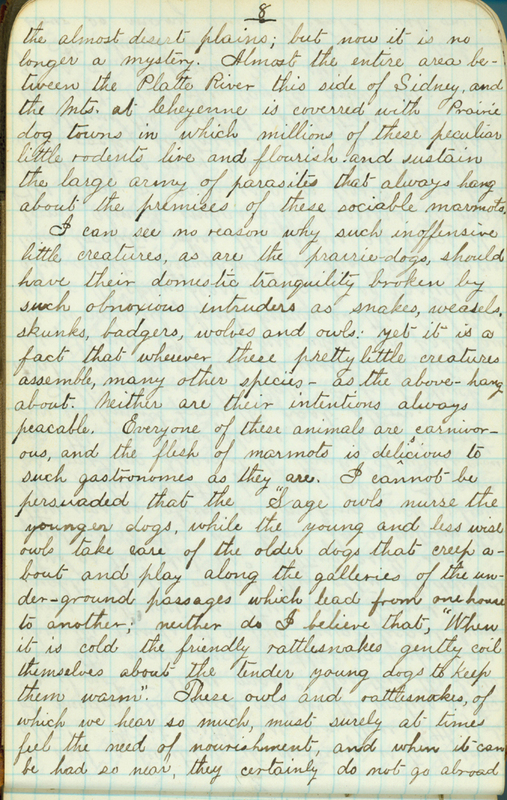 8
the almost desert plains; but now it is no
longer a mystery. Almost the entire area be-
tween the Platte River this side of Sidney, and
the Mts. at Cheyenne is coverred with Prairie
dog towns in which millions of these peculiar
little rodents live and flourish and sustain
the large army of parasites that always hang
about the premises of these sociable marmots.
I can see no reason why such inoffensive
little creatures, as are the prairie-dogs, should
have their domestic tranquility broken by
such obnoxious intruders as snakes, weasels,
skunks, badgers, wolves and owls: yet it is a
fact that wherever these pretty little creatures
assemble, many other species - as the above - hang
about. Neither are their intentions always
peacable. Everyone of these animals are carnivor-
ous, and the flesh of marmots is delicious to
such gastronomes as they are. I cannot be
persuaded that the "Sage owls nurse the
younger dogs, while the young and less wise
owls take care of the older dogs that creep a-
bout and play along the galleries of the un-
der-ground passages which lead from one house
to another," neither do I believe that, "When
it is cold the friendly rattlesnakes gently coil
themselves about the tender young dogs to keep
them warm". These owls and rattlesnakes, of
which we hear so much, must surely at times
feel the need of nourishment, and when it can
be had so near, they certainly do not go abroad